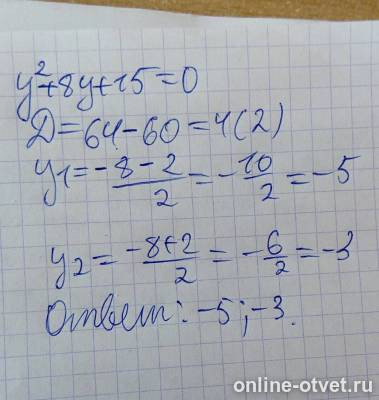 y²+8y+15=0
Д=64-60=4(2)
y₁=-8-2/2=-10/2=-5
y₂=-8+2/2=-6/2=-3
Ответ: -5;-3.
online-otvet.ru